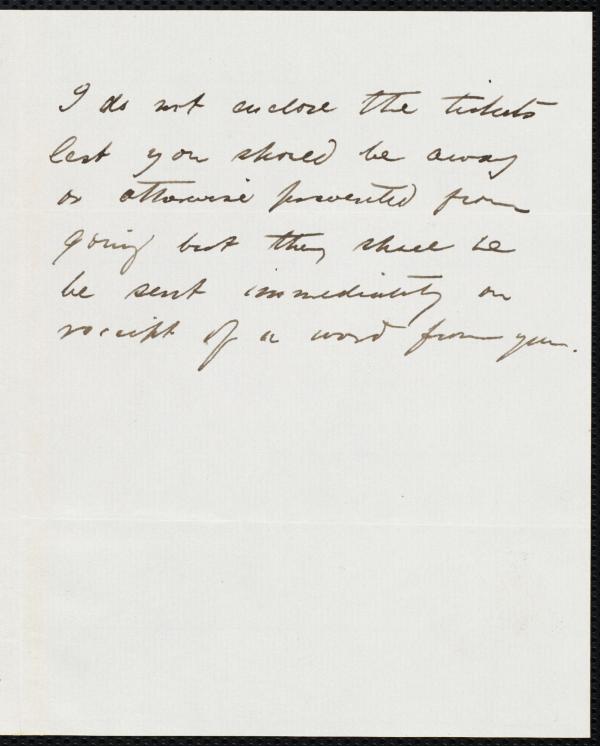 I do not enclose the tickets
lest you should be away
or otherwise prevented from
going but they shall be
be sent immediately on
receipt of a word from you.